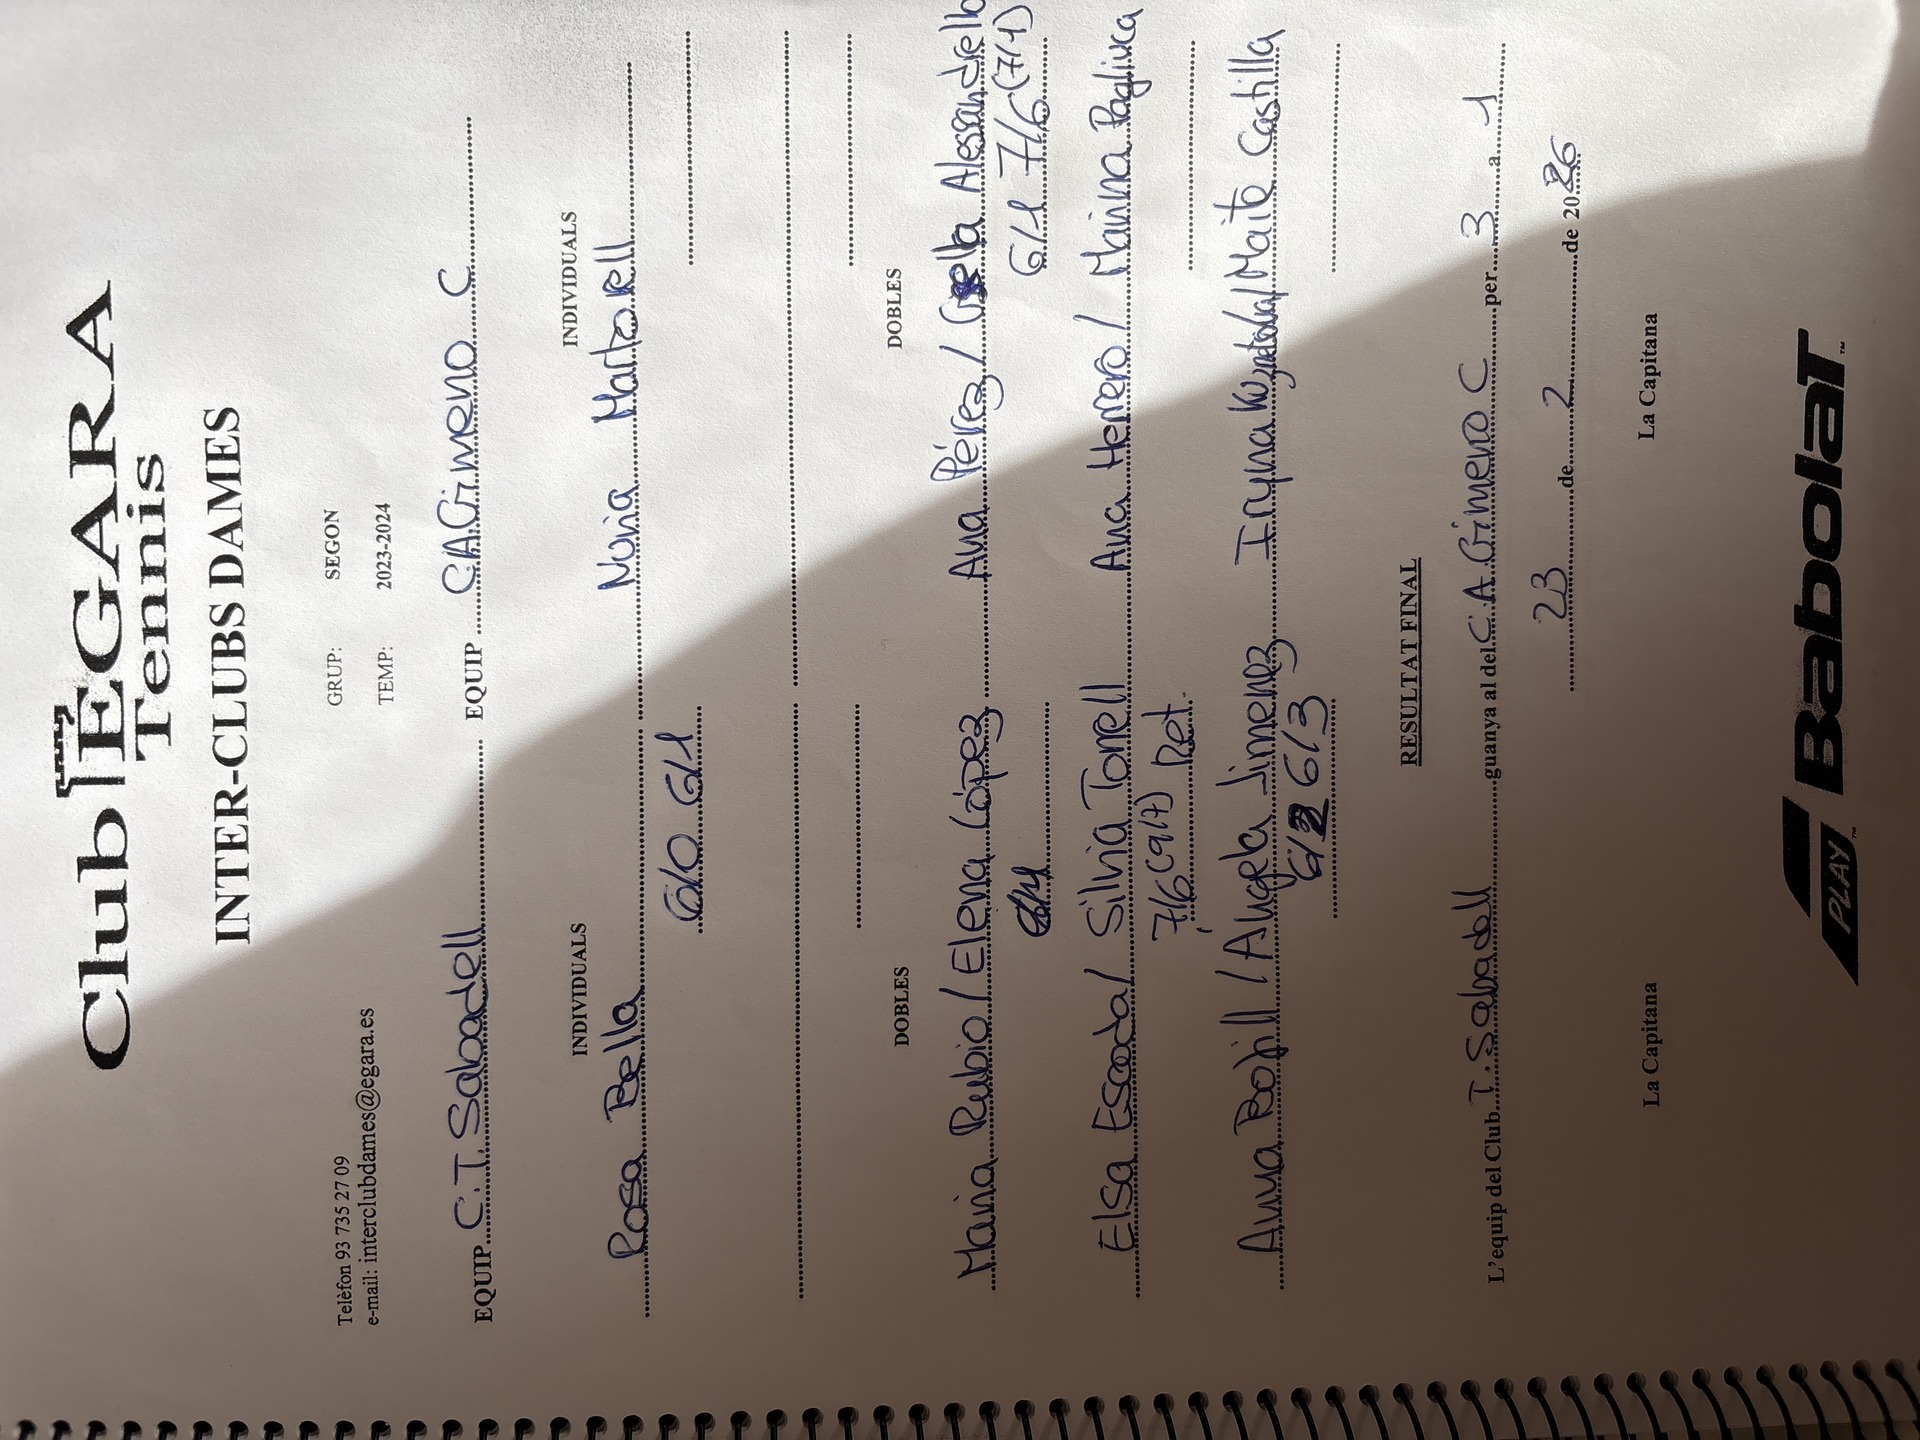 Club EGARA
Tennis
INTER-CLUBS DAMES
Telèfon 93 735 27 09 GRUP: SEGON
e-mail: interclubdames@egara.es TEMP: 2023-2024
EQUIP C.T. Sabadell EQUIP C.A.Gimeno C
INDIVIDUALS INDIVIDUALS
Rosa Bella Nuria Martorell
6/0 6/1
DOBLES DOBLES
Maria Rubio / Elena López Ana Pérez / Alessandrello
6/1 7/6 (7/4)
Elsa Escoda / Silvia Torrell Ana Herrero / Marina Pagliuca
7/6 (9/7) Ret.
Anna Bojill / Àngela Jimenez Iryna / Maite Castilla
6/2 6/3
RESULTAT FINAL
L'equip del Club T. Sabadell guanya al del C.A. Gimeno C per 3 a 1
23 de 2 de 2026
La Capitana La Capitana
PLAY Babolat